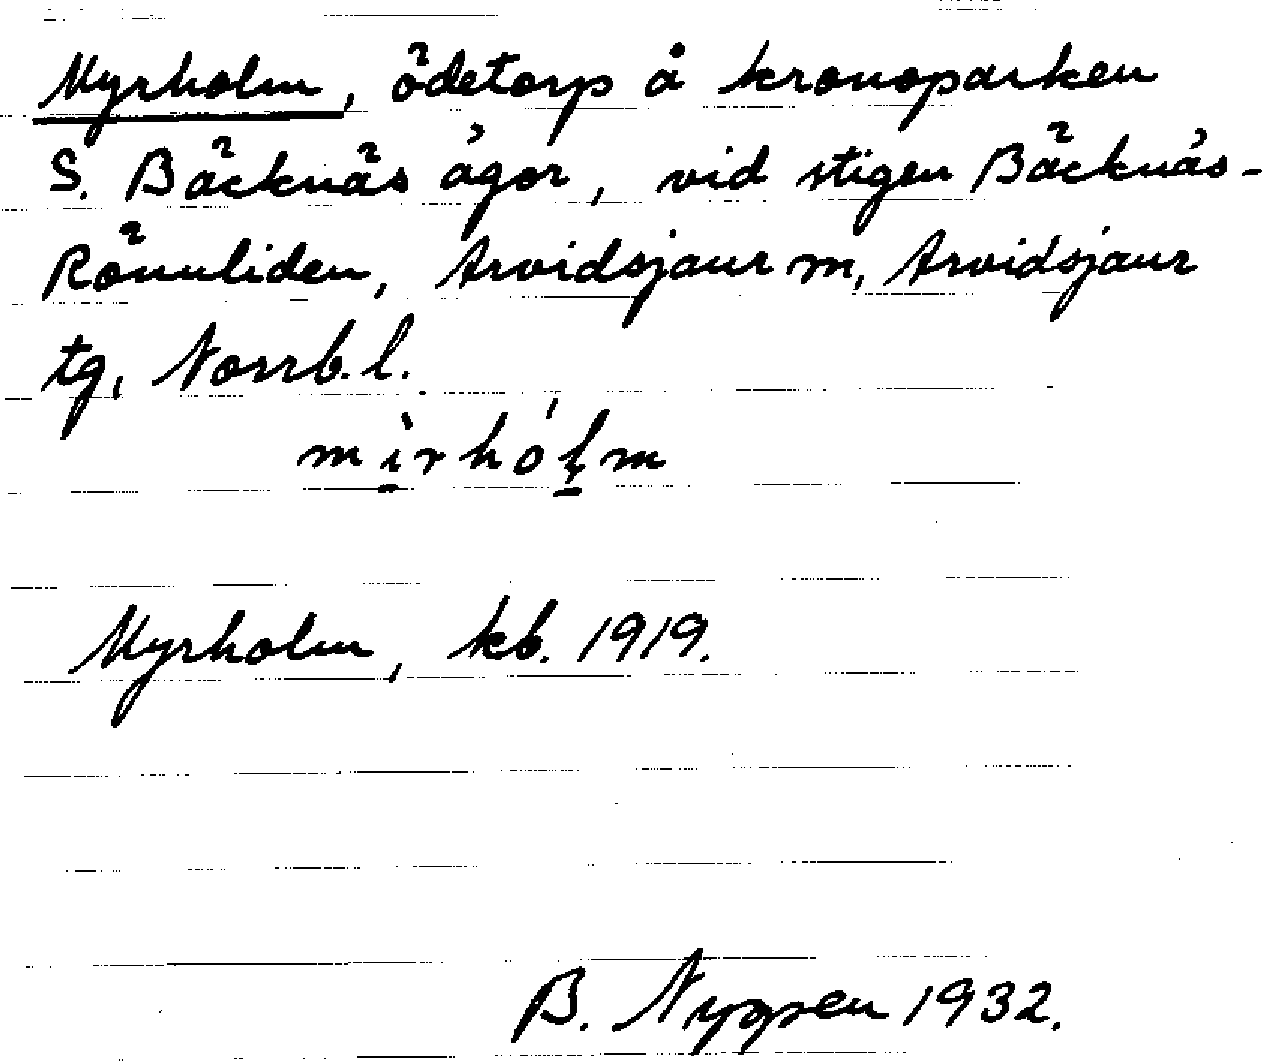 Myrholm, ödetorp å kronoparken
S. Bäcknäs ägor, vid stigen Bäcknäs-
Rönnliden, Arvidsjaur m, Arvidsjaur
tg, Norrb. l.
mìrhól̩m
Myrholm, kb. 1919.
B. 1932.